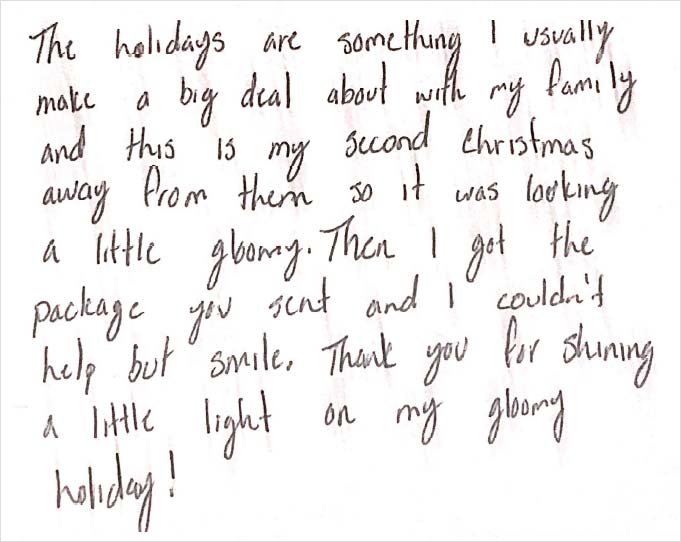 The holidays are something I usually
make a big deal about with my family
and this is my second Christmas
away from them so it was looking
a little gloomy. Then I got the
package you sent and I couldn't
help but smile. Thank you for shining
a little light on my gloomy
holiday!